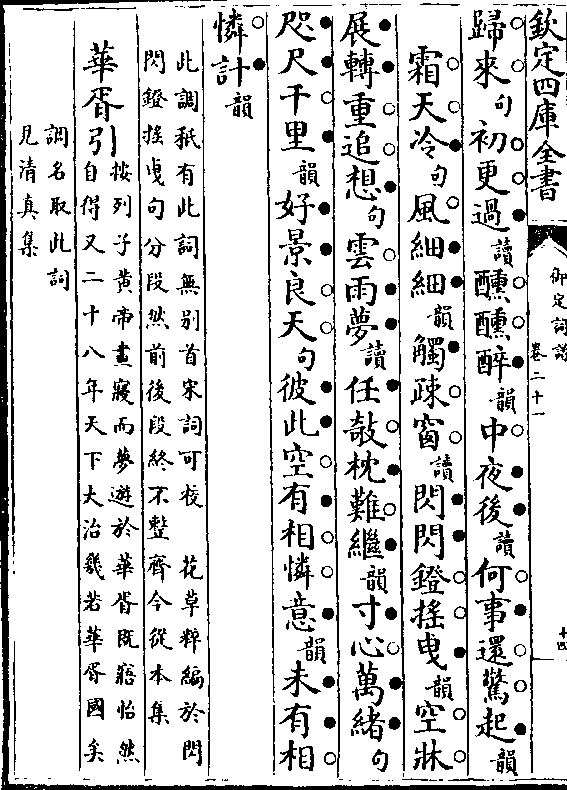 欽定四庫全書
御定詞譜
卷二十一
十四
歸來句初更過讀醺醺醉韻中夜後讀何事還驚起韻
霜天冷句風細細韻觸疎窗讀閃閃鐙搖曳韻空牀
展轉重追想句雲雨夢讀任敧枕難繼韻寸心萬緒句
咫尺千里韻好景良天句彼此空有相憐意韻未有相
憐計韻
此調秖有此詞無別首宋詞可校 花草粹編於閃
閃鐙搖曳句分段然前後段終不整齊今從本集
華胥引按列子黃帝晝寢而夢遊於華胥既寤怡然
自得又二十八年天下大治幾若華胥國矣
調名取此詞
見清真集